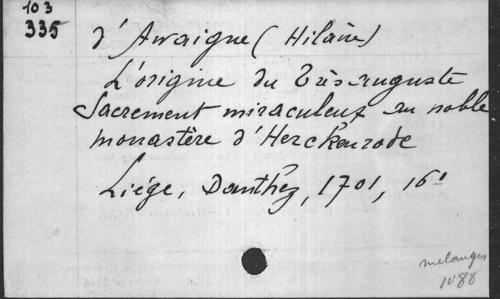 103
335
d'Awaigne (Hilaire)
L'origine du Très-auguste
Sacrement miraculeux au noble
monastère d'Herckenrode
Liége, Danthez, 1701, 16°
melanges
1088